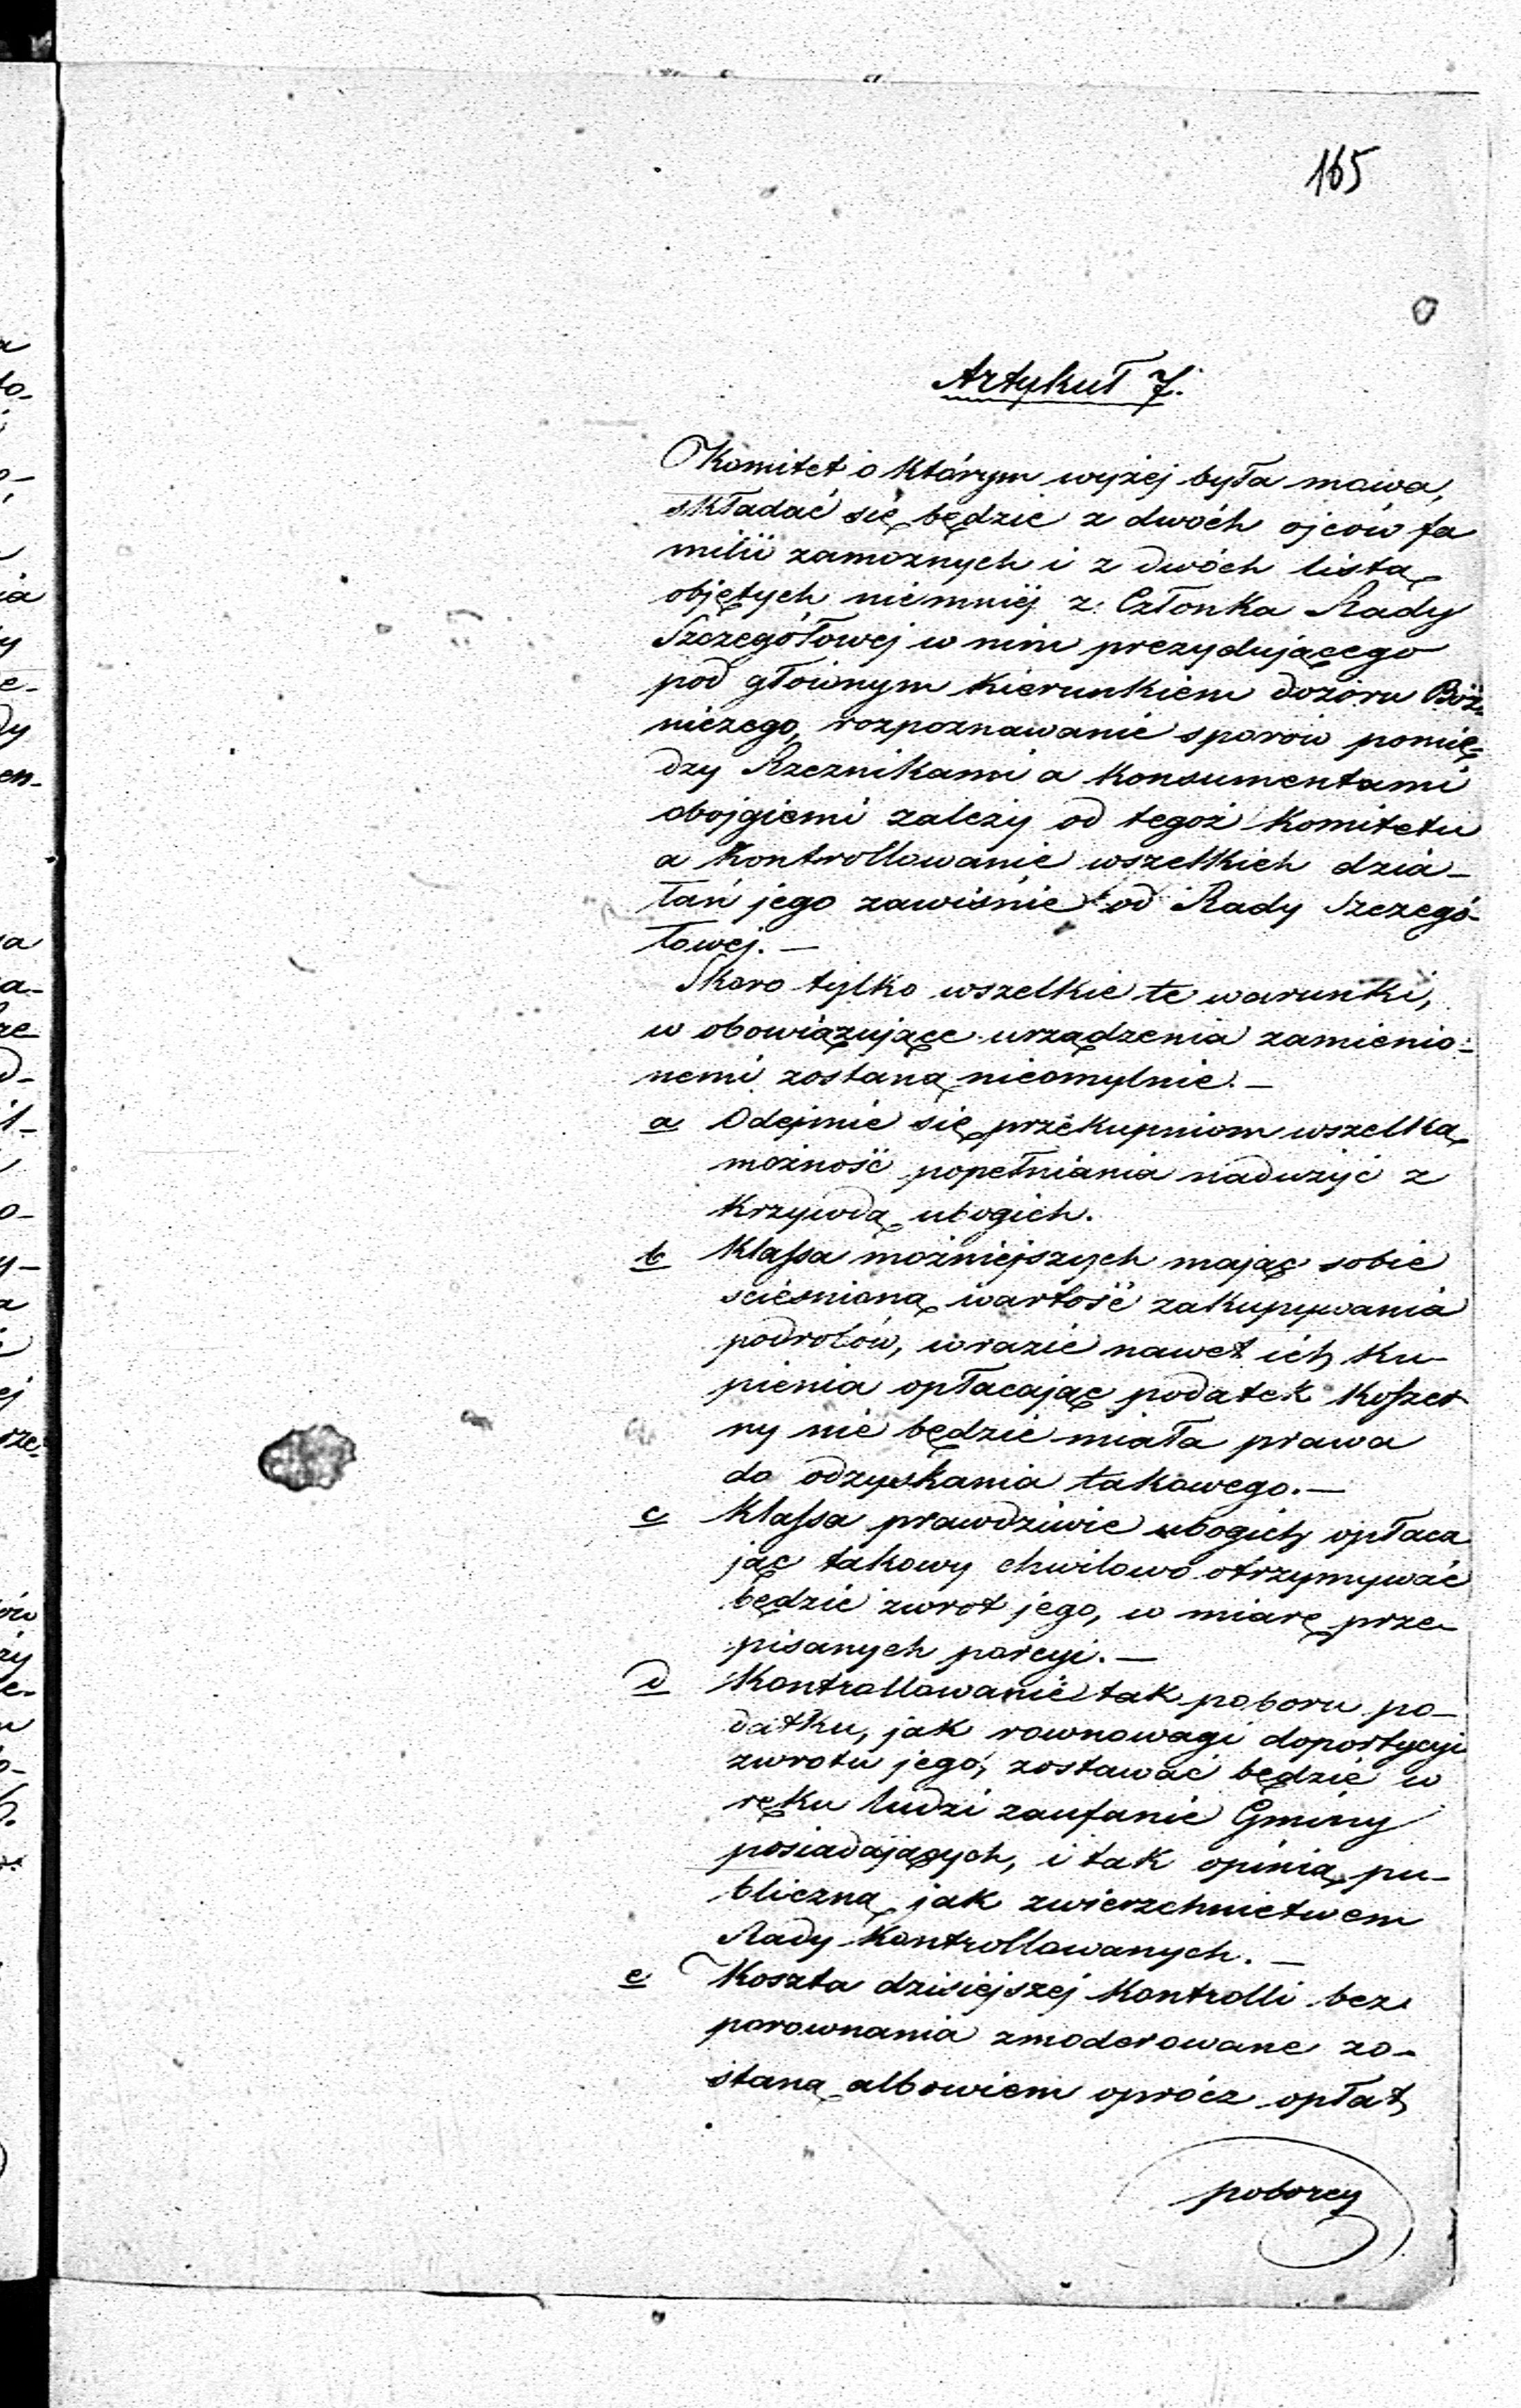 165
Artykuł 7.
Komitet o którym wyżej była mowa,
składać się będzie z dwóch ojców fa
milii zamożnych i z dwóch listą
objętych niemniej z Członka Rady
Szczegółowej w nim prezydującego
pod głównym kierunkiem dozoru Boż-
niczego, rozpoznawanie sporów pomię-
dzy Rzeznikami a Konsumentami
obojgiemi zależy od tegoż Komitetu
a Kontrollowanie wszelkich dzia-
łań jego zawiśnie od Rady Szczegó-
łowej. —
Skoro tylko wszelkie te warunki,
w obowiązujące urządzenia zamienio-
nemi zostaną nieomylnie. —
a Odejmie się przekupniom wszelką
możność popełniania nadużyć z
Krzywdą ubogich.
b Klassa możniejszych mając sobie
ścieśnioną wartość zakupywania
podrobów, w razie nawet ich ku-
pienia opłacając podatek Koszer
ny nie będzie miała prawa
do odzyskania takowego. —
c Klassa prawdziwie ubogich opłaca
jąc takowy chwilowo otrzymywać
będzie zwrot jego, w miarę prze-
pisanych porcyi. —
d Kontrollowanie tak poboru po-
datku, jak rownowagi doportycyi
zwrotu jego, zostawać będzie w
ręku ludzi zaufanie Gminy
posiadających, i tak opinią pu-
bliczną jak zwierzchnictwem
Rady Kontrollowanych. —
e Koszta dzisiejszej Kontrolli bez
porownania zmoderowane zo-
staną albowiem oprócz opłat
poborcy